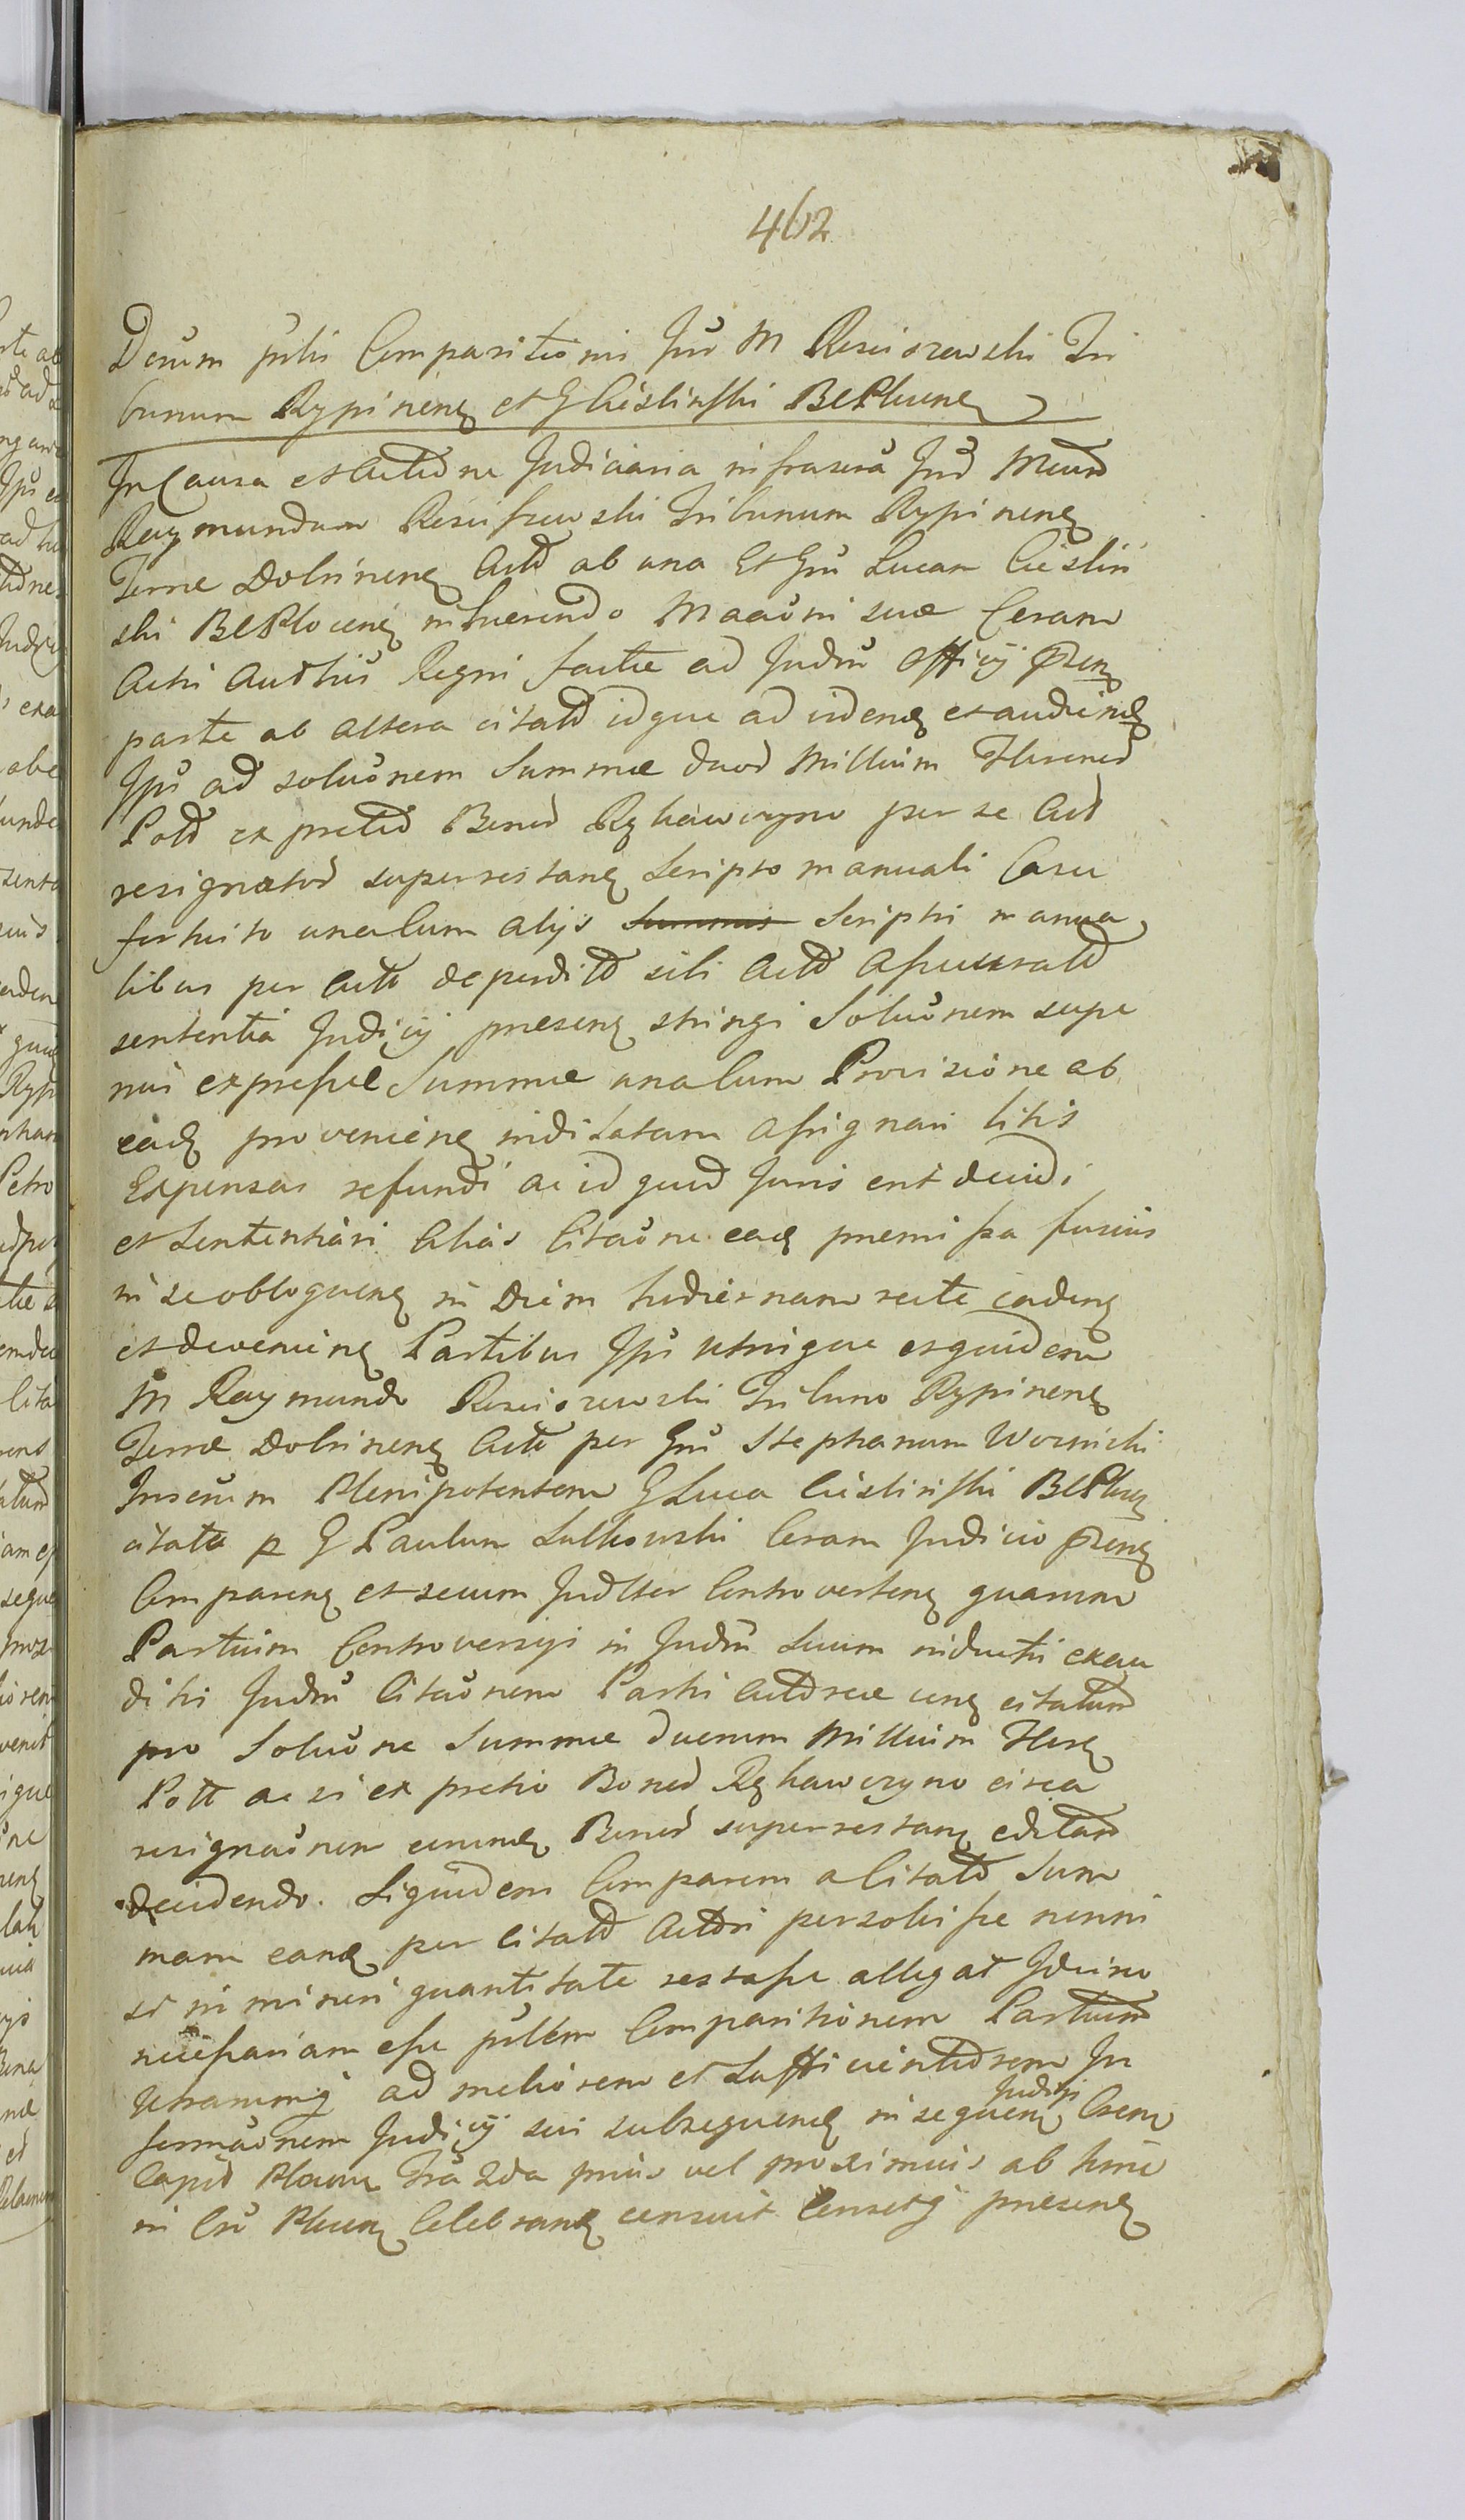 462
Decūm psnlis Comparitionis Inr M Rosciszewski Tri
bunum Rypinens et G Cieslinski BCPlocens
In Causa et Actione Judiciaria infrascra Inr Mcum
Raymundum Rosciszewski Tribunum Rypinens
Terræ Dobrinens Act ab una Et Gnm Lucam Cieslin
ski BCPlocens inhærendo Maaoni suæ Coram
Actis Castri Regni factæ ad Judm Officij præns
parte ab altera citat idque ad videns et audiens
Ipsi ad solūonem Summæ duor Millium Floren
Polt ex pretio Bonor Rghawczyno per se Act
resignator superrestans Scripto manuali Casu
fortuito una cum alijs Scriptis manua
libus per Act deperdit sibi Act assecurat
sententia Judicij præsens stringi Soluonem supe
rius expressæ Summæ una cum Provisione ab
eads provenien inditatam assignari litis
Expensas refundi ac id quod Juris erit decidi
et sententiari alias Citaone eads præmissa fusius
in se obloquens in Diem hodiernam recte cadens
et devenien Partibus Ipsis utrisque et quidem
M Raymundo Rosciszewski Tribuno Rypinens
Terræ Dobrinens Acte per Gnm Stephanum Woznicki
Juratum Plenipotentem G Luca Cieslinski BCPlocs
citato p G Paulum Lutkowski Coram Judicio præns
Comparens et secum Judlter Controvertens quarum
Partium Controversijs in Judm Suum inductis exau
ditis Judm Citaonem Parti Actoreæ uns citatum
pro Soluone Summæ duorum Millium Flors
Polt ac si ex pretio Bonor Rghawczyno circa
resignaonem eorumds Bonor superrestans editam
decidendo. Siquidem Comparens a Citato Sum
mam eands per Citat Actori persolvisse nonni
si in minori quantitate restasse allegat Ideirco
necessariam esse psnlem Comparitionem Partium
Utrarumq ad meliorem et Sufficientiorem In
formaonem Judicij sui subsequens in sequens Judijs Coram
Capit Plocen Fra 2da prius vel proximius ab hinc
in Cri Plocens Celebrans censuit Censetq præsens